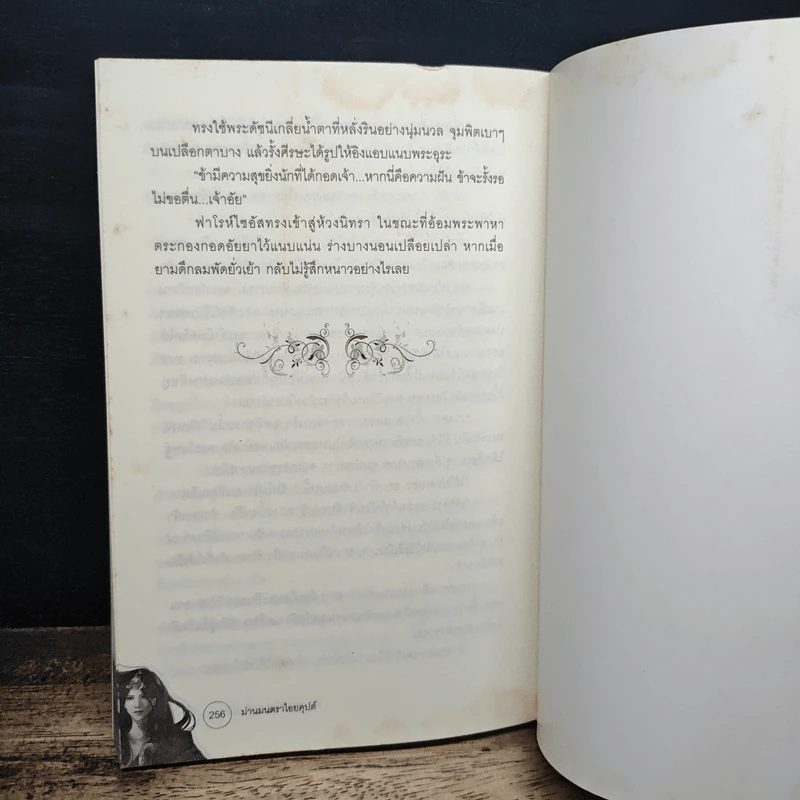 ทรงใช้พระดัชนีเกลี่ยน้ำตาที่หลั่งรินอย่างนุ่มนวล จุมพิตเบาๆ
บนเปลือกตาบาง แล้วรั้งศีรษะได้รูปให้อิงแอบแนบพระอุระ
"ข้ามีความสุขยิ่งนักที่ได้กอดเจ้า...หากนี่คือความฝัน ข้าจะรั้งรอ
ไม่ขอตื่น...เจ้าอัย"
ฟาโรห์ไซอัสทรงเข้าสู่ห้วงนิทรา ในขณะที่อ้อมพระพาหา
ตระกองกอดอัยยาไว้แนบแน่น ร่างบางนอนเปลือยเปล่า หากเมื่อ
ยามดึกลมพัดยั่วเย้า กลับไม่รู้สึกหนาวอย่างไรเลย
256 ม่านมนตราไอยคุปต์